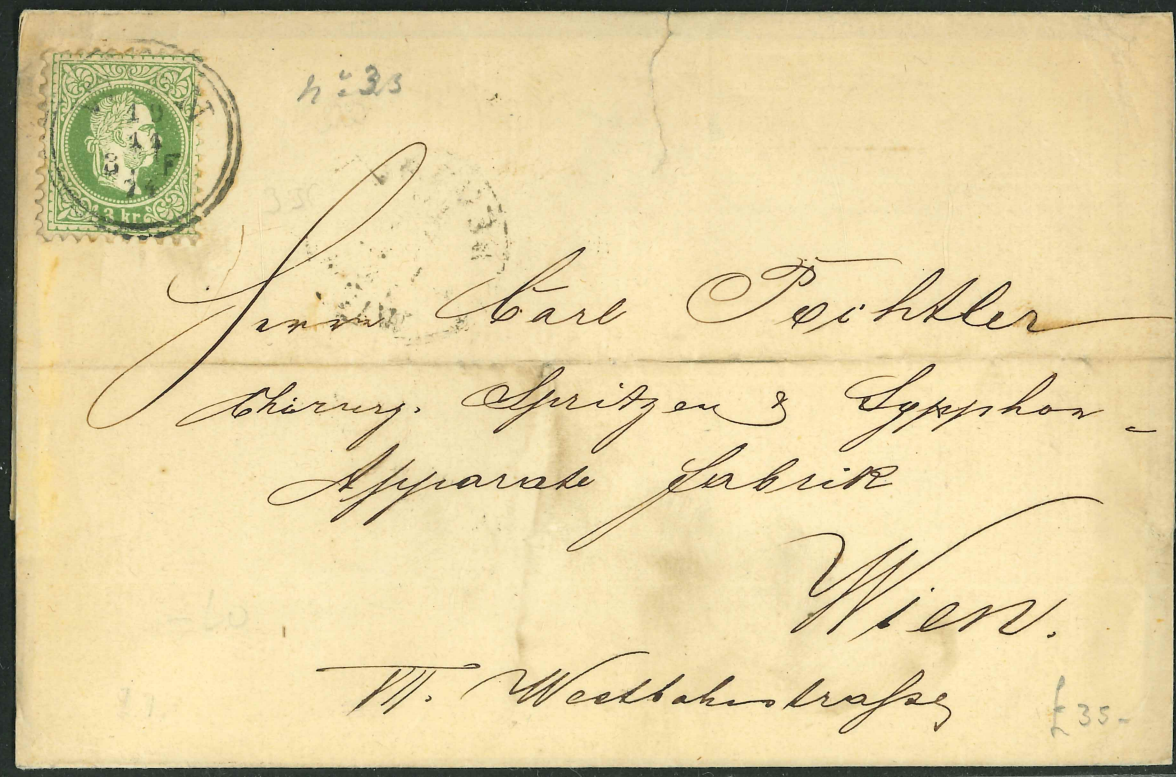 3 kr.
18
11
8 F
74
35
Herrn Carl Pochtler
Chirurg. Spritzen & Syphon-
Apparate fabrik
Wien.
VII. Westbahnstraße
£ 35-